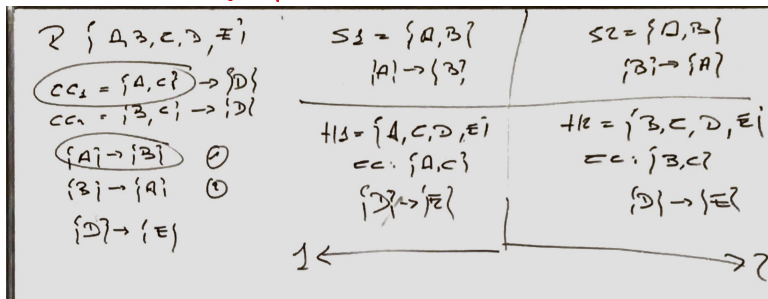 R { A, B, C, D, E }
CC1 = {A, C} → {D}
CC2 = {B, C} → {D}
{A} → {B} ①
{B} → {A} ②
{D} → {E}
S1 = {A, B}
{A} → {B}
S2 = {A, B}
{B} → {A}
H1 = {A, C, D, E}
CC: {A, C}
{D} → {E}
H2 = {B, C, D, E}
CC: {B, C}
{D} → {E}
1 ←
→ 2